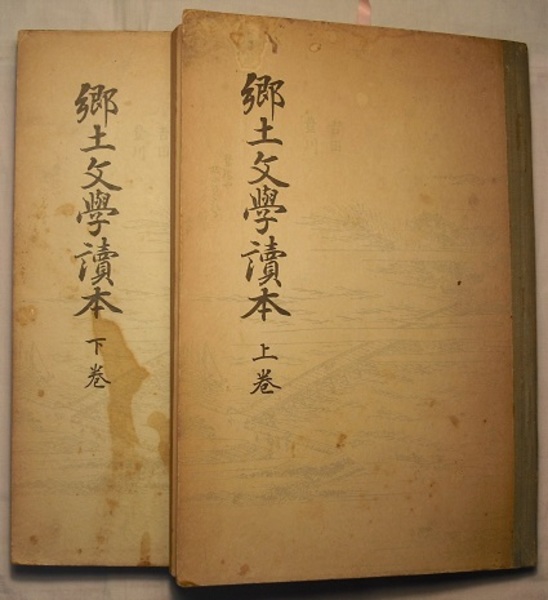 郷土文學讀本
上巻
郷土文學讀本
下巻